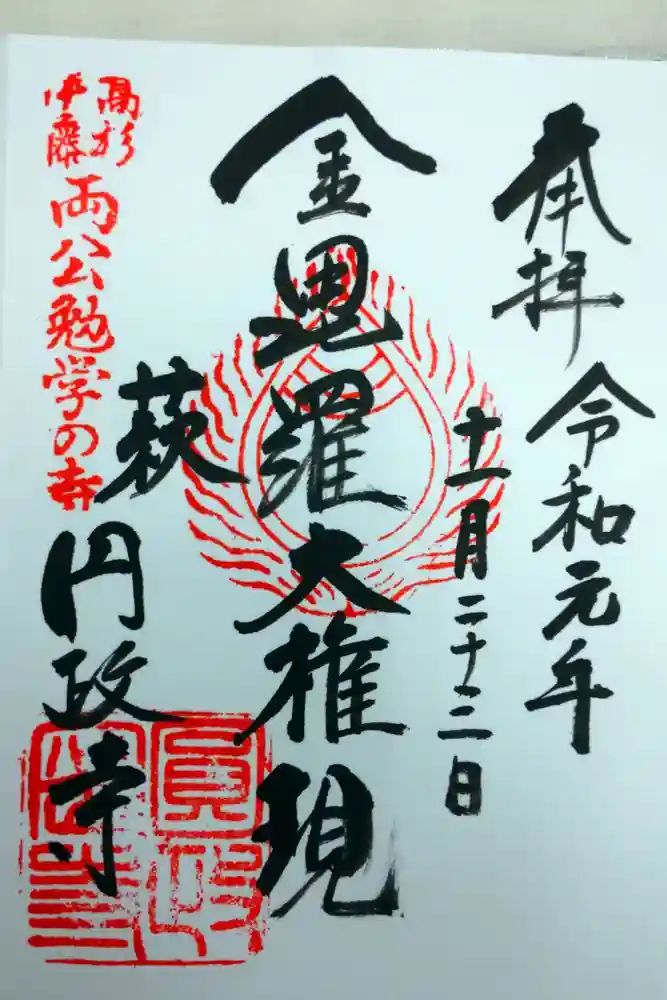 奉拝
令和元年
十一月二十三日
金毘羅大権現
萩
円政寺
高杉
伊藤
両公勉学の寺